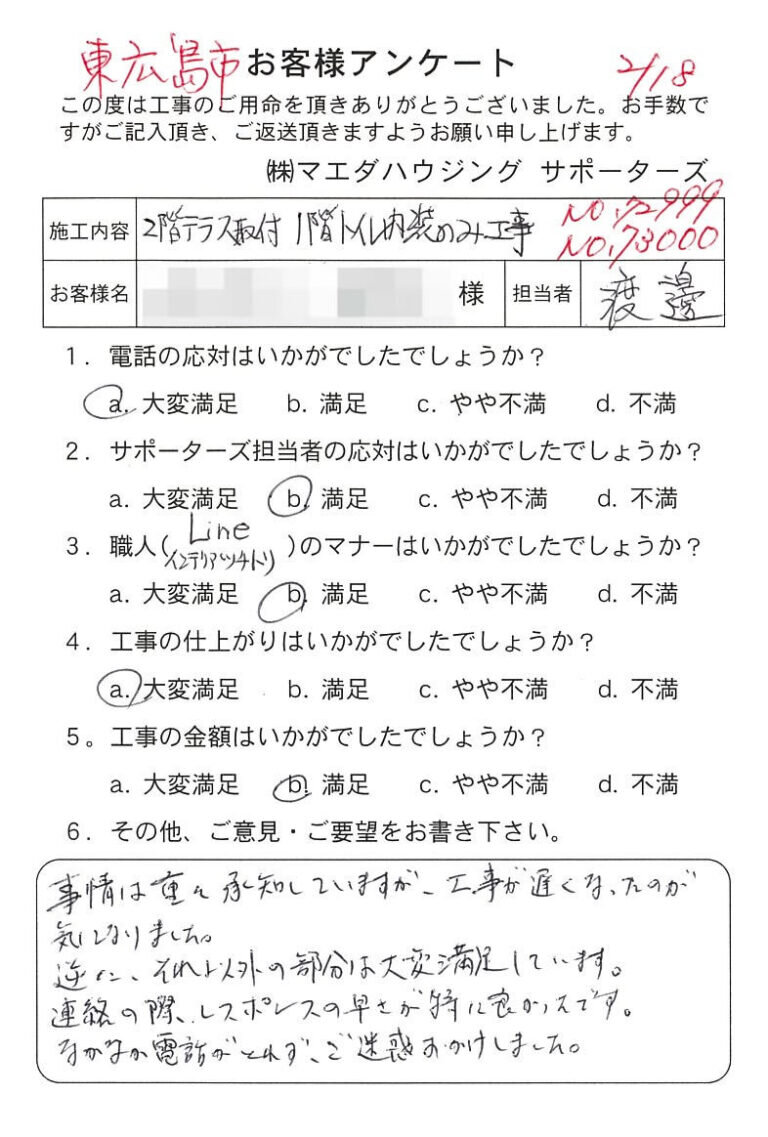 東広島市 お客様アンケート 2/18
この度は工事のご用命を頂きありがとうございました。お手数で
すがご記入頂き、ご返送頂きますようお願い申し上げます。
㈱マエダハウジング サポーターズ
施工内容 2階テラス取付 1階トイレ内装のみ工事 NO.72999
NO.73000
お客様名 様 担当者 渡邊
1. 電話の応対はいかがでしたでしょうか？
a. 大変満足 b. 満足 c. やや不満 d. 不満
2. サポーターズ担当者の応対はいかがでしたでしょうか？
a. 大変満足 b. 満足 c. やや不満 d. 不満
3. 職人(Line インテリアツチトリ)のマナーはいかがでしたでしょうか？
a. 大変満足 b. 満足 c. やや不満 d. 不満
4. 工事の仕上がりはいかがでしたでしょうか？
a. 大変満足 b. 満足 c. やや不満 d. 不満
5。工事の金額はいかがでしたでしょうか？
a. 大変満足 b. 満足 c. やや不満 d. 不満
6. その他、ご意見・ご要望をお書き下さい。
事情は重々承知していますが、工事が遅くなったのが
気になりました。
逆に、それ以外の部分は大変満足しています。
連絡の際、レスポンスの早さが特に良かったです。
なかなか電話がとれず、ご迷惑おかけしました。